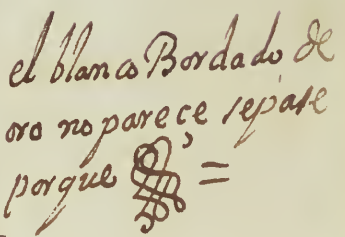 el blanco Bordado de
oro no parece sepase
porque =